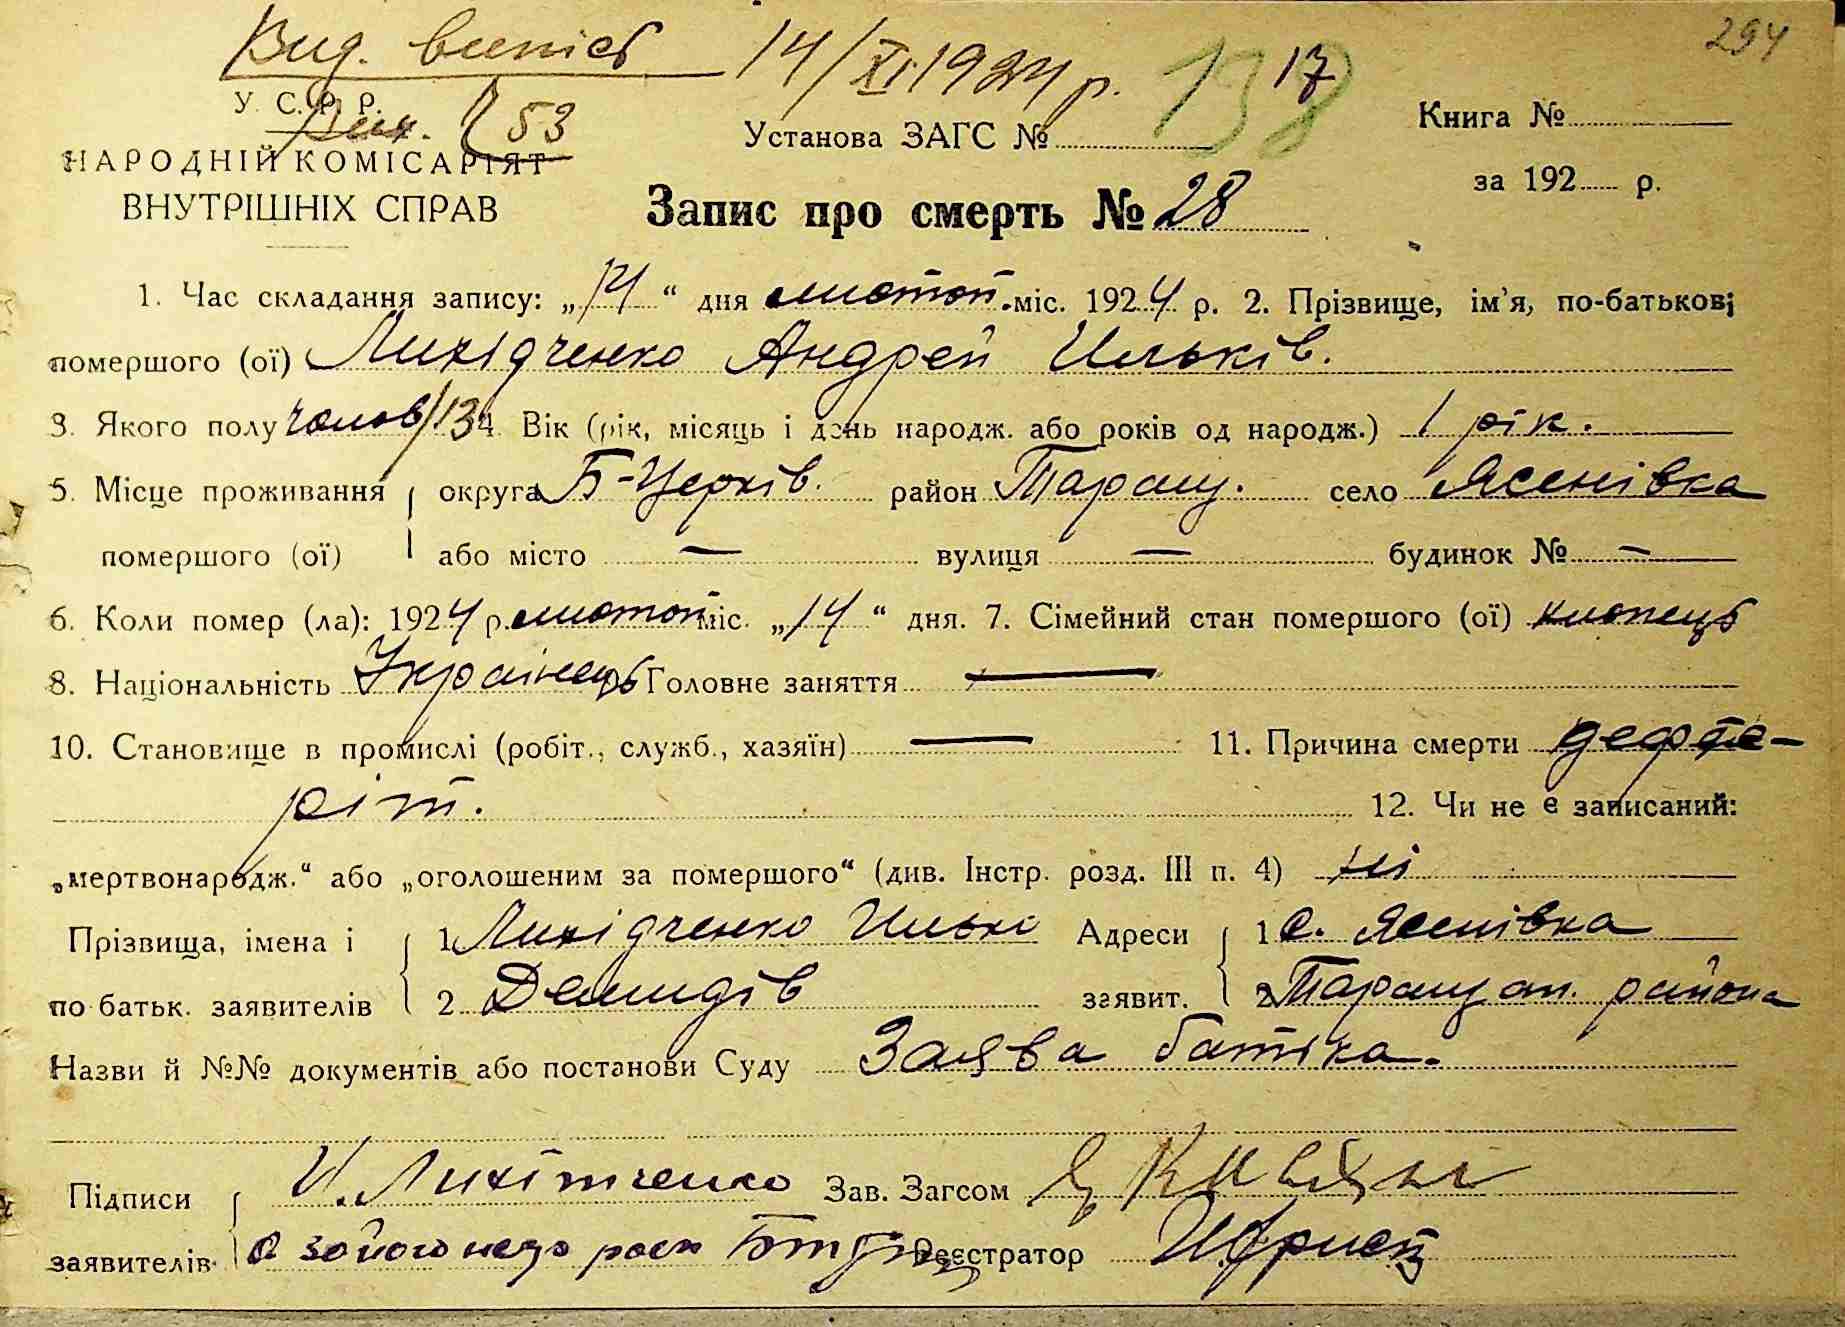 294
Вид. випис 14/XI 1924 р. 138 17
У. С. Р. Р.
53
Установа ЗАГС №
Книга №
НАРОДНІЙ КОМІСАРІЯТ
за 192 р.
ВНУТРІШНІХ СПРАВ
Запис про смерть № 28
1. Час складання запису: „14“ дня листоп. міс. 1924 р. 2. Прізвище, ім'я, по-батькові
помершого (ої) Лихідченко Андрей Ильків.
3. Якого полу чолов/13 4. Вік (рік, місяць і день народж. або років од народж.) 1 рік.
5. Місце проживання округа Б-Церків. район Таращ. село Ясенівка
помершого (ої) або місто — вулиця — будинок № —
6. Коли помер (ла): 1924 р. листоп міс. „14“ дня. 7. Сімейний стан помершого (ої) хлопець
8. Національність Українець 9. Головне заняття —
10. Становище в промислі (робіт., служб., хазяїн) — 11. Причина смерти дефте-
ріт. 12. Чи не є записаний:
„мертвонародж.“ або „оголошеним за помершого“ (див. Інстр. розд. III п. 4) ні
Прізвища, імена і 1 Лихідченко Илько Адреси 1 с. Ясенівка
по батьк. заявителів 2 Демидів заявит. 2 Таращан. района
Назви й №№ документів або постанови Суду Заява батька.
Підписи И. Лихітченко Зав. Загсом
заявителів Реєстратор